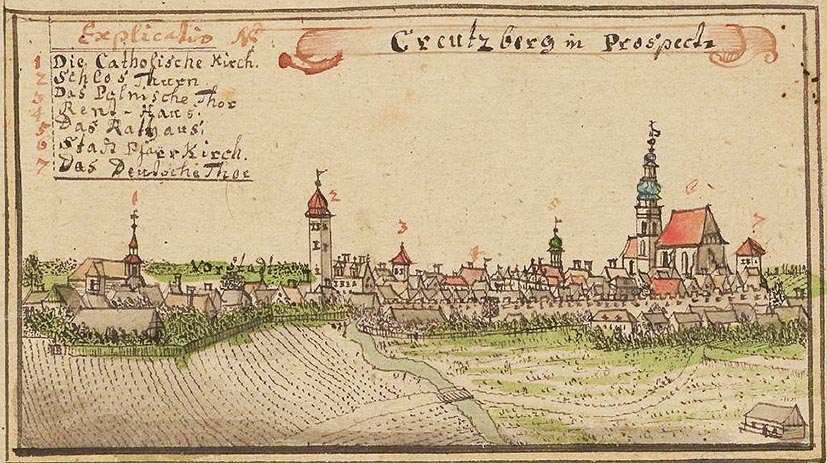 Explicatio No
Creutzberg in Prospect
1 Die Catholische Kirch.
2 Schlos Thurn
3 Das Polnische Thor
4 Rent-Haus.
5 Das Rathaus.
6 Stadt Pfarr Kirch.
7 Das Deutsche Thor
1
2
3
4
5
6
7
Vorstadt